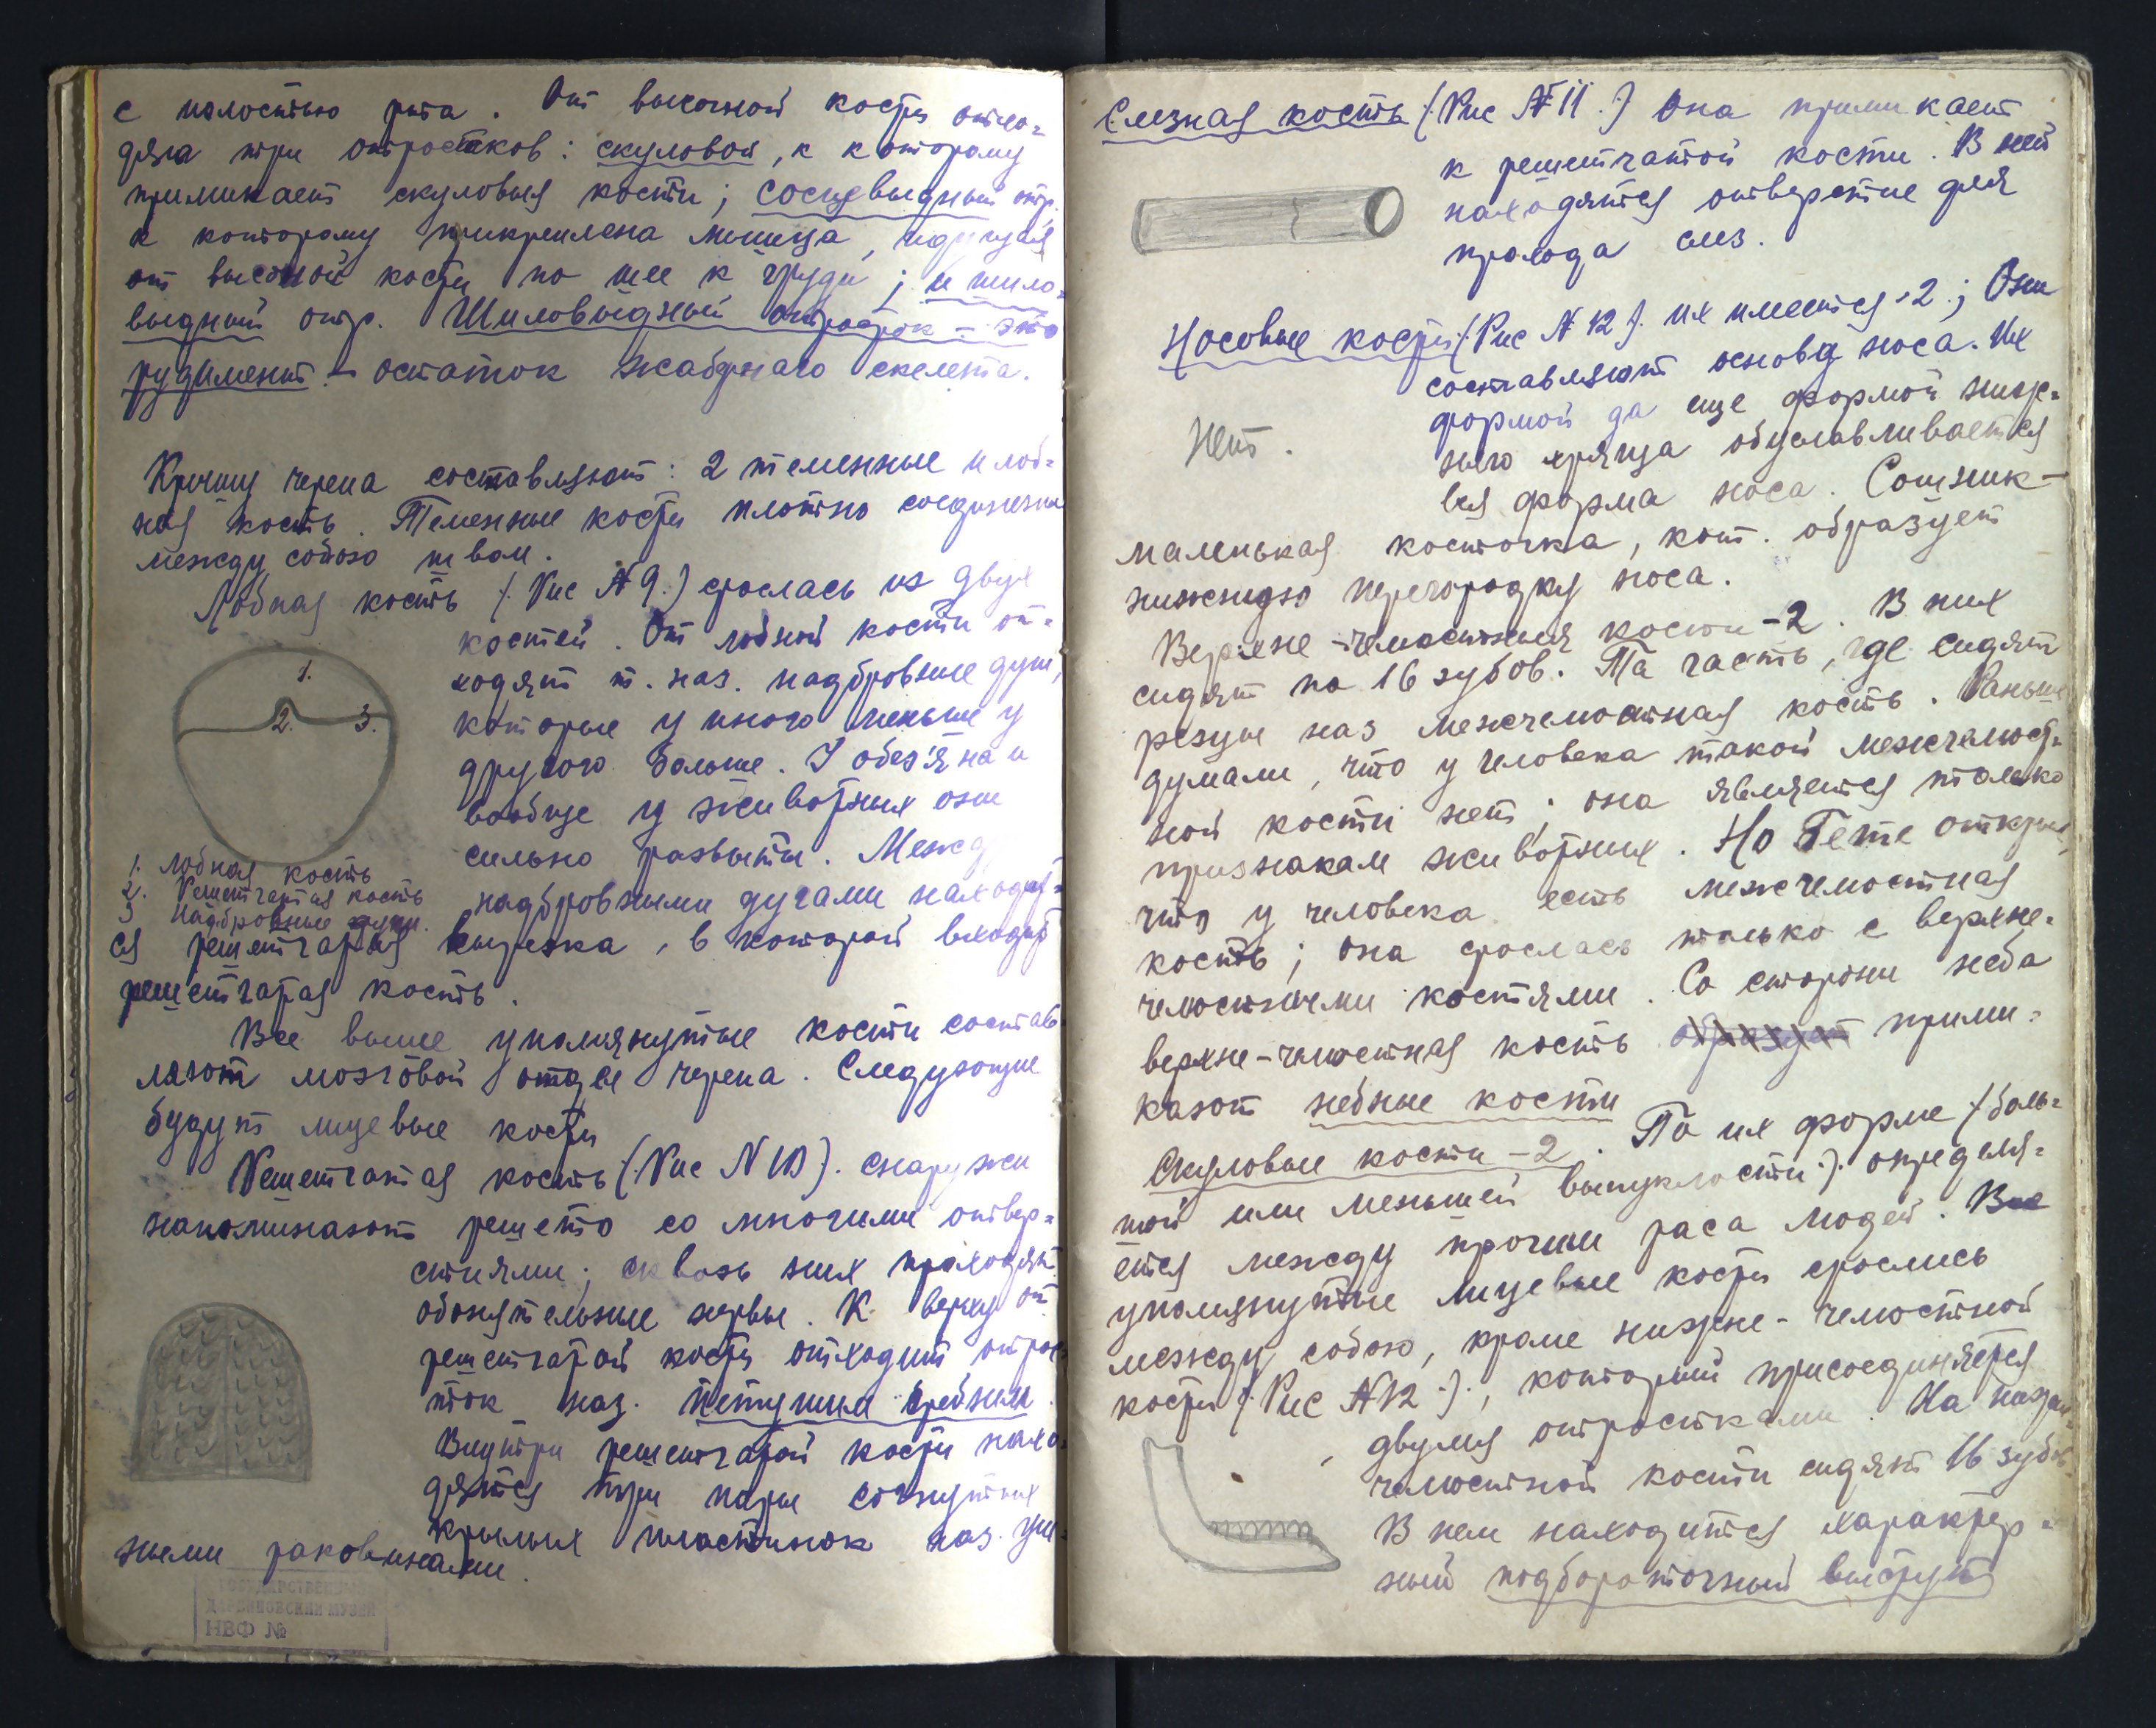 с полостью рта. От височной кости отхо-
дята три отростков: скуловой, к которому
примикает скуловыя кости; сосцевыдный отр.
к которому прикреплена мышца, идущая
от высочной кости по шее к груди; и шило-
выдный отр. Шиловыдный отросток - это
рудимент - остаток жаберного скелета.
Крышу черепа составляют: 2 теменные и лоб-
ная кость. Теменные кости плотно соединены
между собою швом.
Лобная кость (Рис № 9.) срослась из двух
костей. От лобной кости от-
ходят т. наз. надбровные дуги,
которые у иного меньше у
другого больше. У обезяна и
вообще у животных они
сильно развиты. Межд
1.
2.
3.
1. Лобная кость
2. Решетчатая кость
3 Надбровные дуги.
надбровными дугами находит-
ся решетчатая вырезка, в которой входит
решетчатая кость.
Все выше упомянутые кости состав
ляют мозговой отдел черепа. Следующие
будут лицевые кости
Решетчатая кость (Рис N 10). снаружи
напоминают решето со многими отвер-
стиями; сквозь них проходят
обонятельные нервы. К верху от
решетчатой кости отходит отрос
ток наз. петушим гребнем.
Внутри решетчатой кости нахо-
дятся три пары согнутых
крылых пластинок наз. уш-
ными раковинами.
ГОСУДАРСТВЕННЫЙ
ДАРВИНОВСКИЙ МУЗЕЙ
НВФ №
Слезная кость (Рис № 11.) Она примикает
к решетчатой кости. В ней
находятся отверстие для
прохода слез.
Носовые кости (Рис № 12). их имеется 2; Они
составляют основу носа. Их
формой да еще формой нижн-
него хряща обуславливается
вся форма носа. Сошник -
Нет.
маленькая косточка, кот. образует
нижнюю перегородку носа.
Верхне-челюстныя кости - 2. В них
сидят по 16 зубов. Та часть, где сидят
резцы наз межчелюстная кость. Раньше
думали, что у человека такой межчелюст-
ной кости нет; она является только
признакам животных. Но Гете открыл,
что у человека есть межчелюстная
кость; она срослась только с верхне-
челюстными костями. Со стороны неба
верхне-челюстная кость образует прими-
кают небные кости
Скуловые кости - 2. По их форме (боль-
шой или меньшей выпуклости). определя-
ется между прочим раса людей. Все
упомянутые лицевые кости срослись
между собою, кроме нижне-челюстной
кости (Рис № 12.), который присоединяется
двумя отростками. На нижне-
челюстной кости сидят 16 зубов.
В нем находится характер-
ный подбороточный выступ